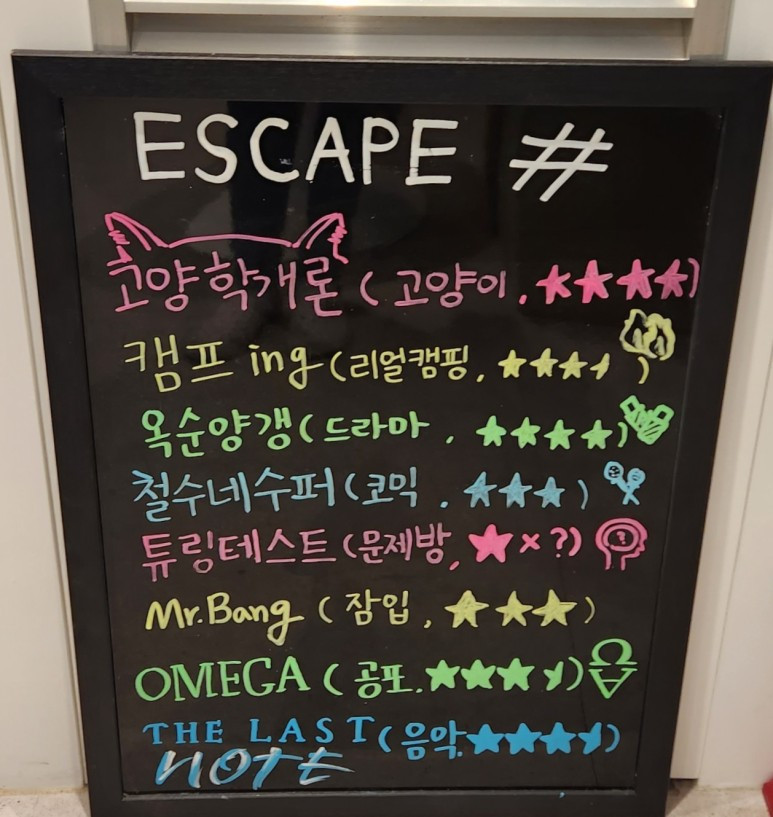 ESCAPE #
고양학개론 (고양이, ★★★★)
캠프ing (리얼캠핑, ★★★⯨)
옥순양갱 (드라마, ★★★★)
철수네수퍼 (코믹, ★★★)
튜링테스트 (문제방, ★×?)
Mr.Bang (잠입, ★★★)
OMEGA (공포, ★★★⯨)
THE LAST (음악, ★★★⯨)
NOTE